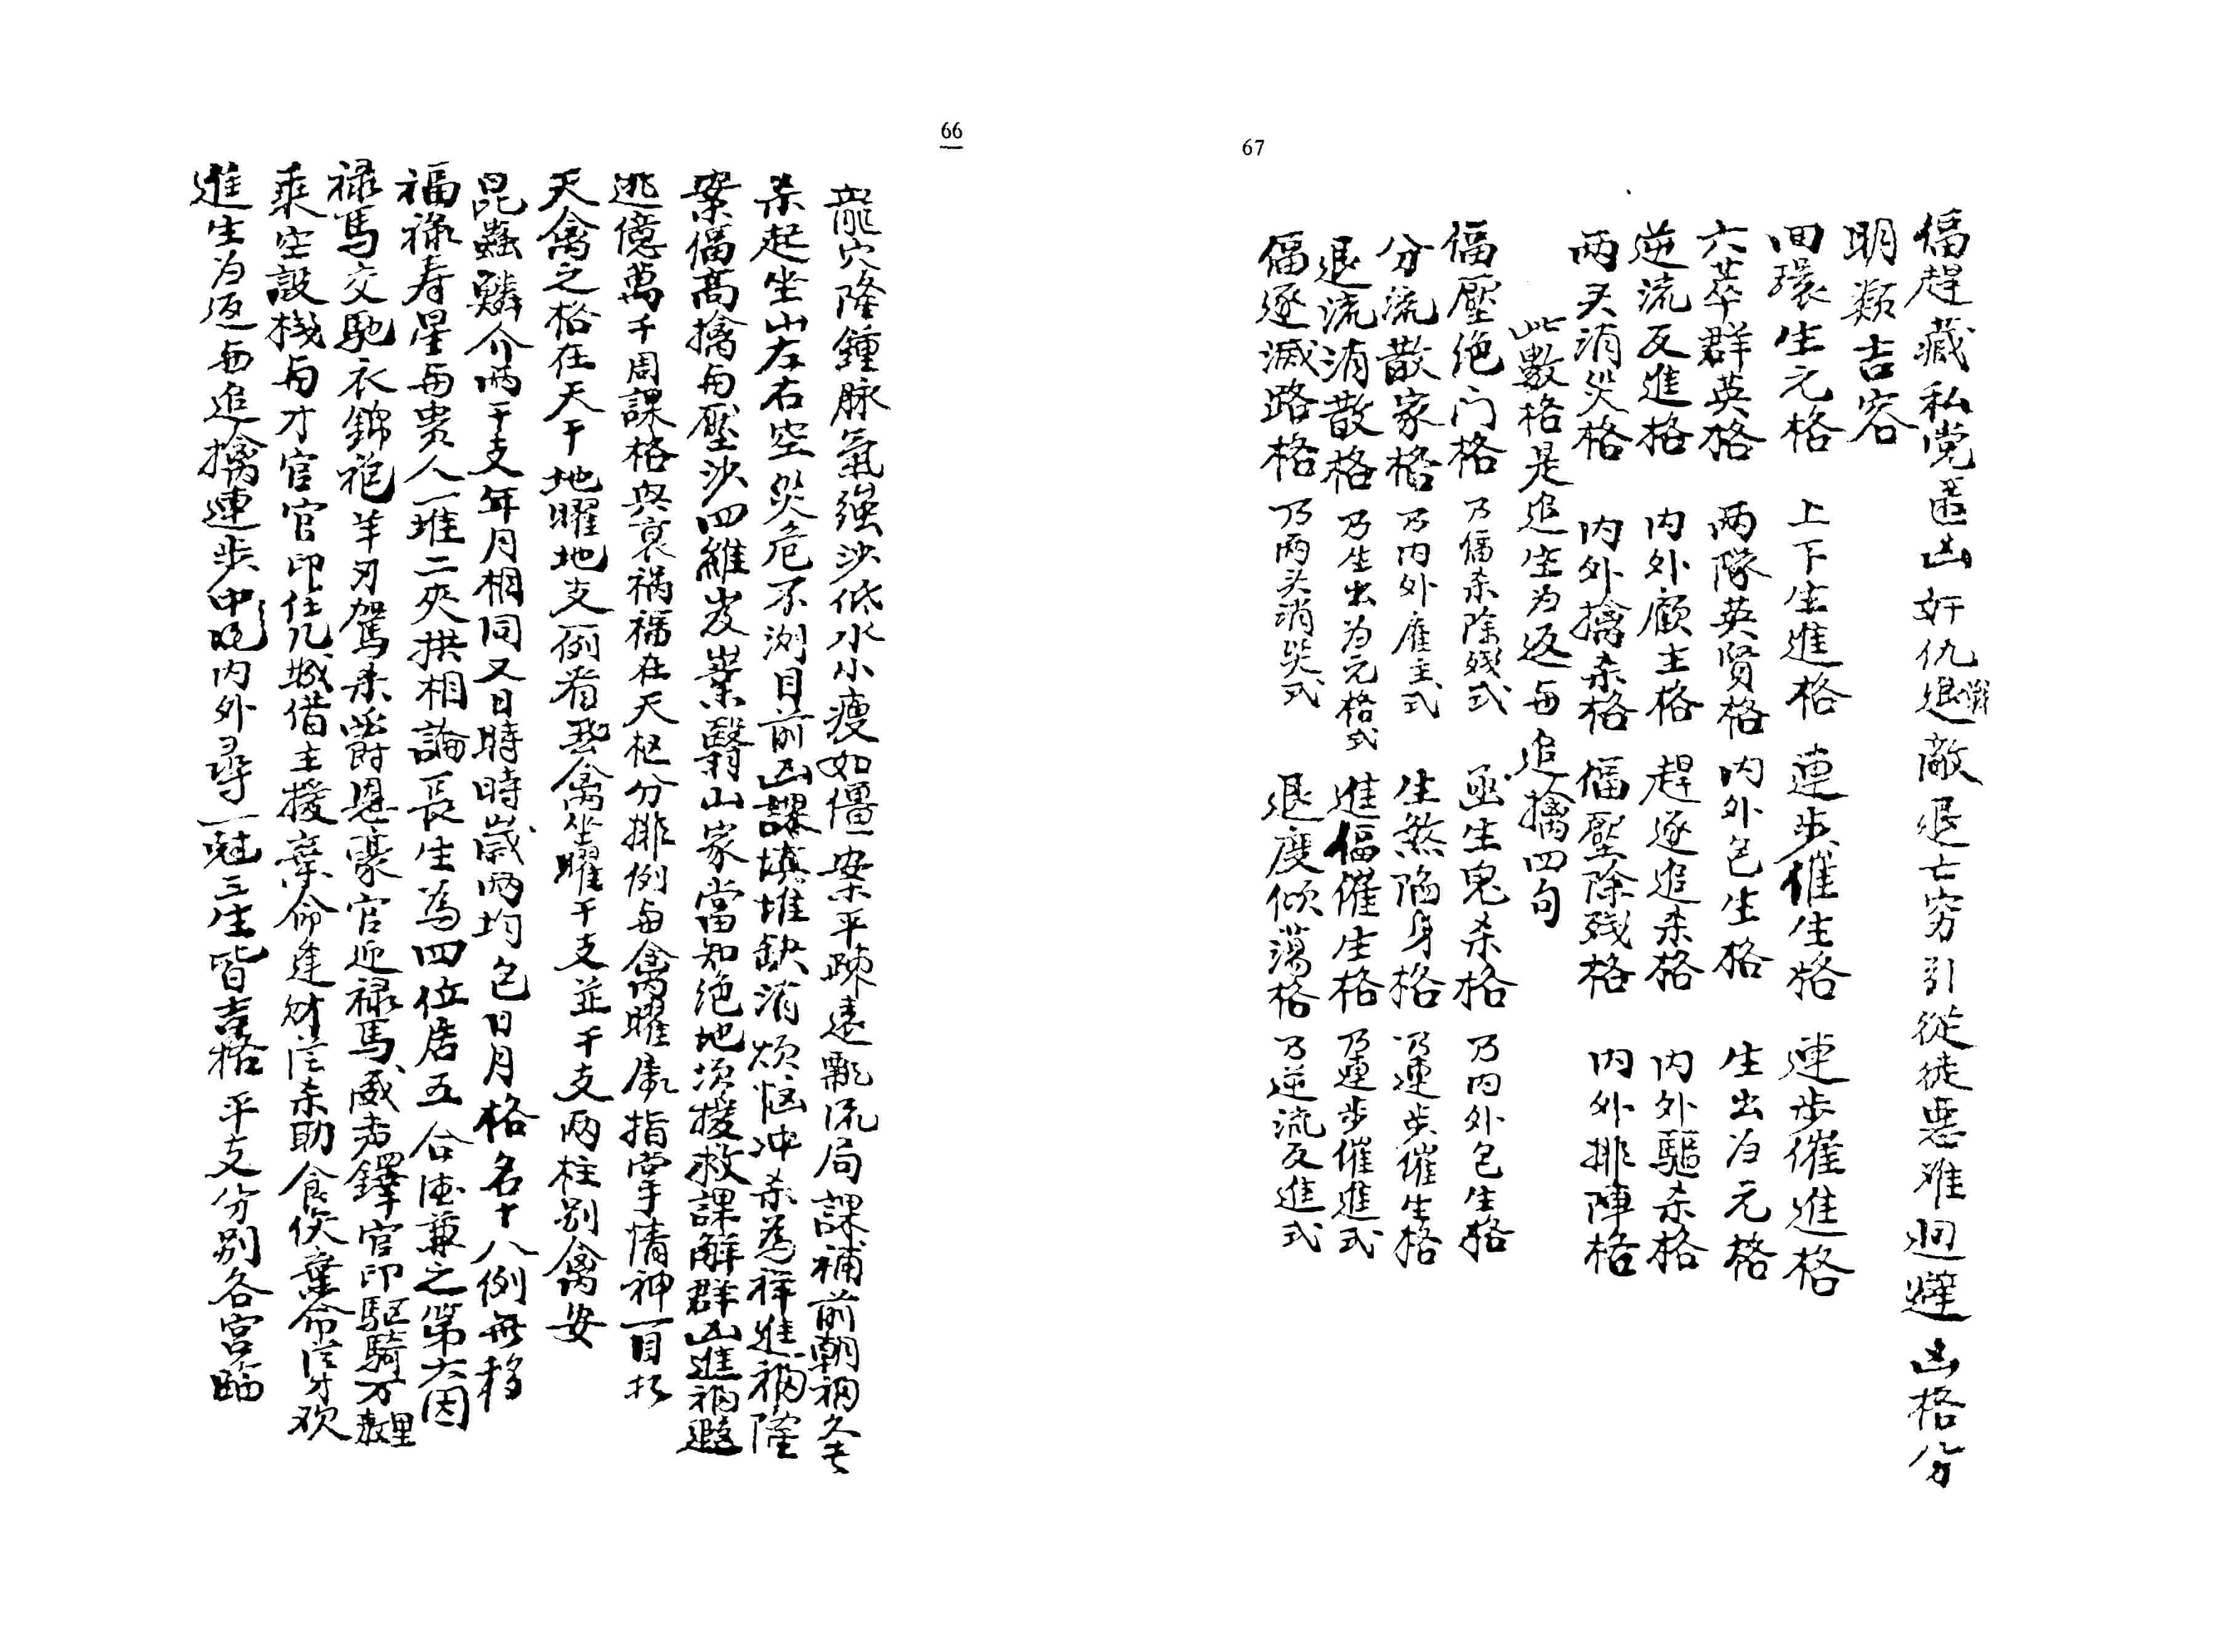 66
龍穴隆鍾脉氣強沙低水小瘦如僵案平踈遠飄流局課補前朝禍久
杀起坐山左右空災危不測目前凶課填堆缺消煩惱冲杀為祥進禍隆
案偪高擒与壓沙四維崀嶪翳山家當知絕地湏援救課解群山進禍遐
逃億萬千周課格與衰禍福在天枢分排例与禽曜處指掌情神一目
天禽之格在天干地曜地支一例看登禽坐曜干支並干支两柱别禽安
昆蟲鱗介两干支年月相同又日時時歲两均包日月格名十八例無移
福祿寿星与贵人一堆二夾拱相論長生為四位居五合德兼之第六因
禄馬交馳衣錦袍羊刃駕杀爵恩豪官迎禄馬威声鐸官印駆騎万里
乘空設棧与才官官印任凢城借主援棄命逢财從杀助食傷棄命從才欢
進生为返与追擒連步中脱内外尋一魁三生皆吉格平支分别各宫臨
67
偪趕藏私党匿凶奸仇退敵退亡穷引從徒悪难迴避凶格分
明類吉容
囬環生元格 上下生進格 連步催生格 連步催進格
六萃群英格 两隊英賢格 内外包生格 生出为元格
逆流反進格 内外顧主格 趕逐追杀格 内外驅杀格
两头消災格 内外擒杀格 偪壓除残格 内外排陣格
此數格是追生为返与追擒四句
偪壓绝门格 乃偪杀除残式 丞生鬼杀格 乃内外包生格
分流散家格 乃内外雇主式 生煞陷身格 乃連步催生格
退流消散格 乃生出为元格式 進偪催生格 乃連步催進式
偪逐滅路格 乃两头消災式 退度倾蕩格 乃逆流反進式